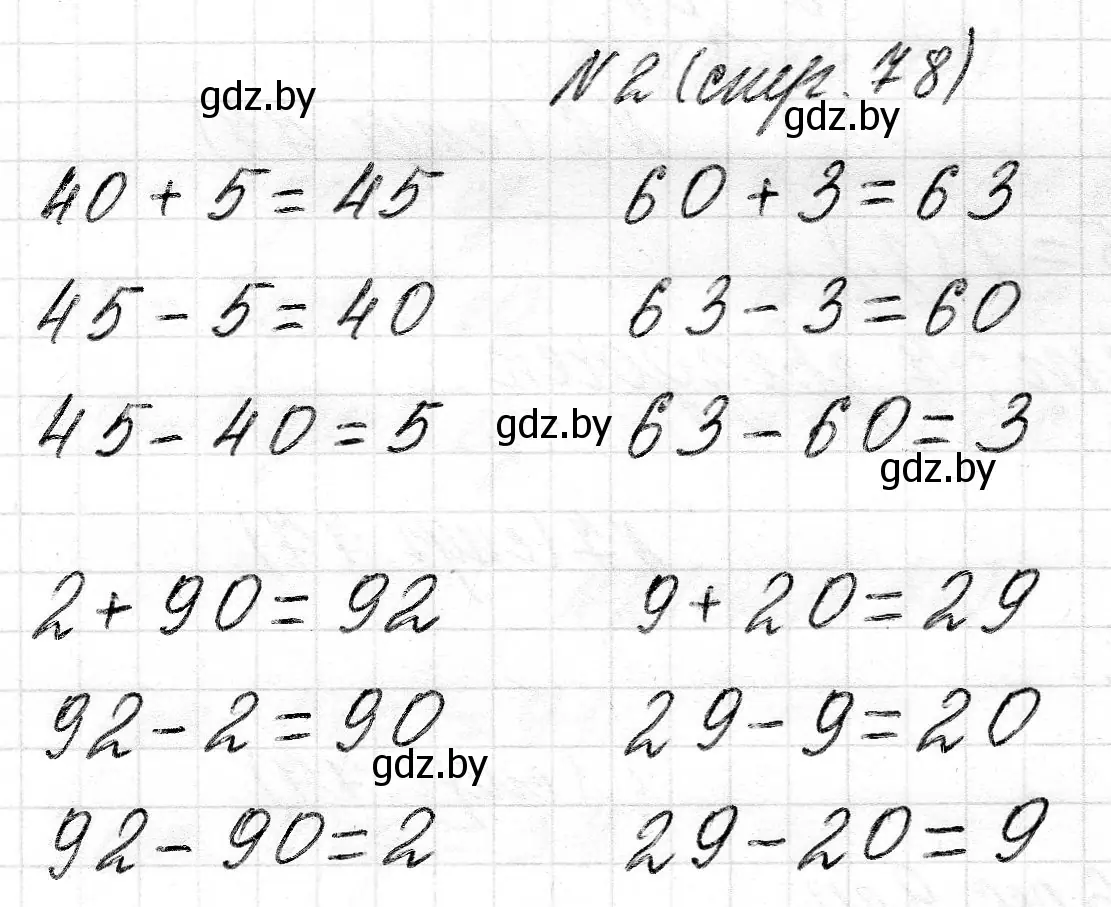 gdz.by
N 2 (стр. 78)
gdz.by
40 + 5 = 45
60 + 3 = 63
45 - 5 = 40
63 - 3 = 60
45 - 40 = 5
gdz.by
63 - 60 = 3
gdz.by
2 + 90 = 92
9 + 20 = 29
92 - 2 = 90
29 - 9 = 20
gdz.by
92 - 90 = 2
29 - 20 = 9